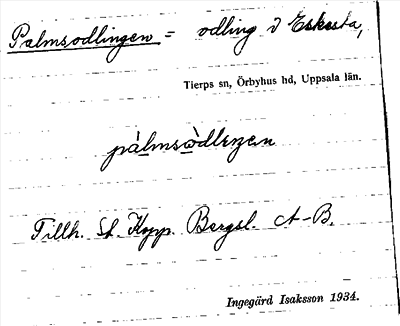 Palmsodlingen = odling i Eskesta,
Tierps sn, Örbyhus hd, Uppsala län.
pàlmsòdleŋen
Tillh. St. Kopp. Bergsl. A-B.
Ingegärd Isaksson 1934.